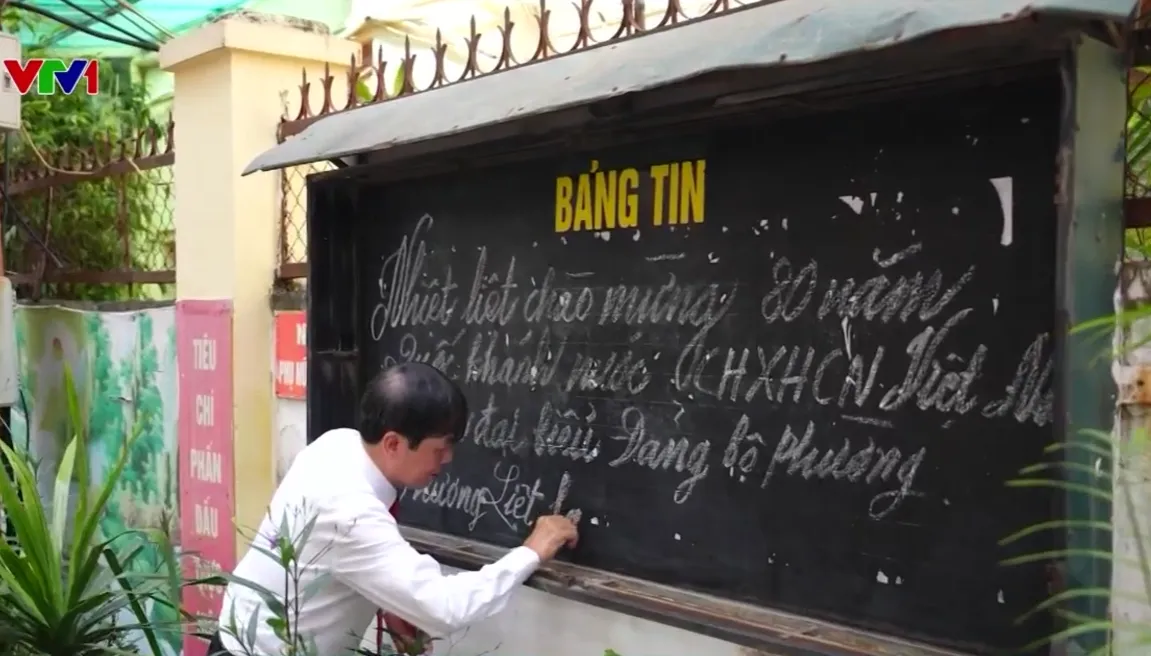 VTV1
BẢNG TIN
Nhiệt liệt chào mừng 80 năm
Quốc khánh nước CHXHCN Việt
đại biểu Đảng bộ phường
Phương Liệt
TIÊU
CHÍ
PHẤN
ĐẤU